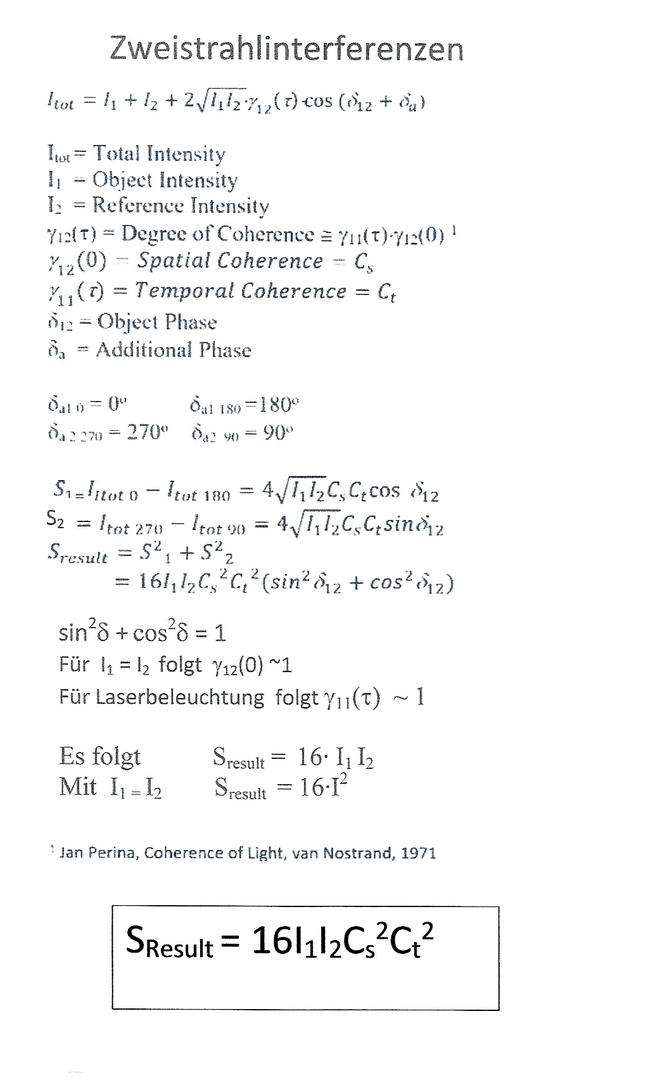 Zweistrahlinterferenzen
I_tot = I₁ + I₂ + 2√(I₁I₂)·γ₁₂(τ)·cos (δ₁₂ + δₐ)
I_tot = Total Intensity
I₁ = Object Intensity
I₂ = Reference Intensity
γ₁₂(τ) = Degree of Coherence ≅ γ₁₁(τ)·γ₁₂(0) ¹
γ₁₂(0) = Spatial Coherence = C_s
γ₁₁(τ) = Temporal Coherence = C_t
δ₁₂ = Object Phase
δₐ = Additional Phase
δ_a1 0 = 0° δ_a1 180 = 180°
δ_a2 270 = 270° δ_a2 90 = 90°
S₁ = I_Itot 0 − I_tot 180 = 4√(I₁I₂)C_sC_t cos δ₁₂
S₂ = I_tot 270 − I_tot 90 = 4√(I₁I₂)C_sC_t sinδ₁₂
S_result = S²₁ + S²₂
= 16I₁I₂C_s²C_t²(sin²δ₁₂ + cos²δ₁₂)
sin²δ + cos²δ = 1
Für I₁ = I₂ folgt γ₁₂(0) ~1
Für Laserbeleuchtung folgt γ₁₁(τ) ~ 1
Es folgt S_result = 16· I₁ I₂
Mit I₁ = I₂ S_result = 16·I²
¹ Jan Perina, Coherence of Light, van Nostrand, 1971
S_Result = 16I₁I₂C_s²C_t²